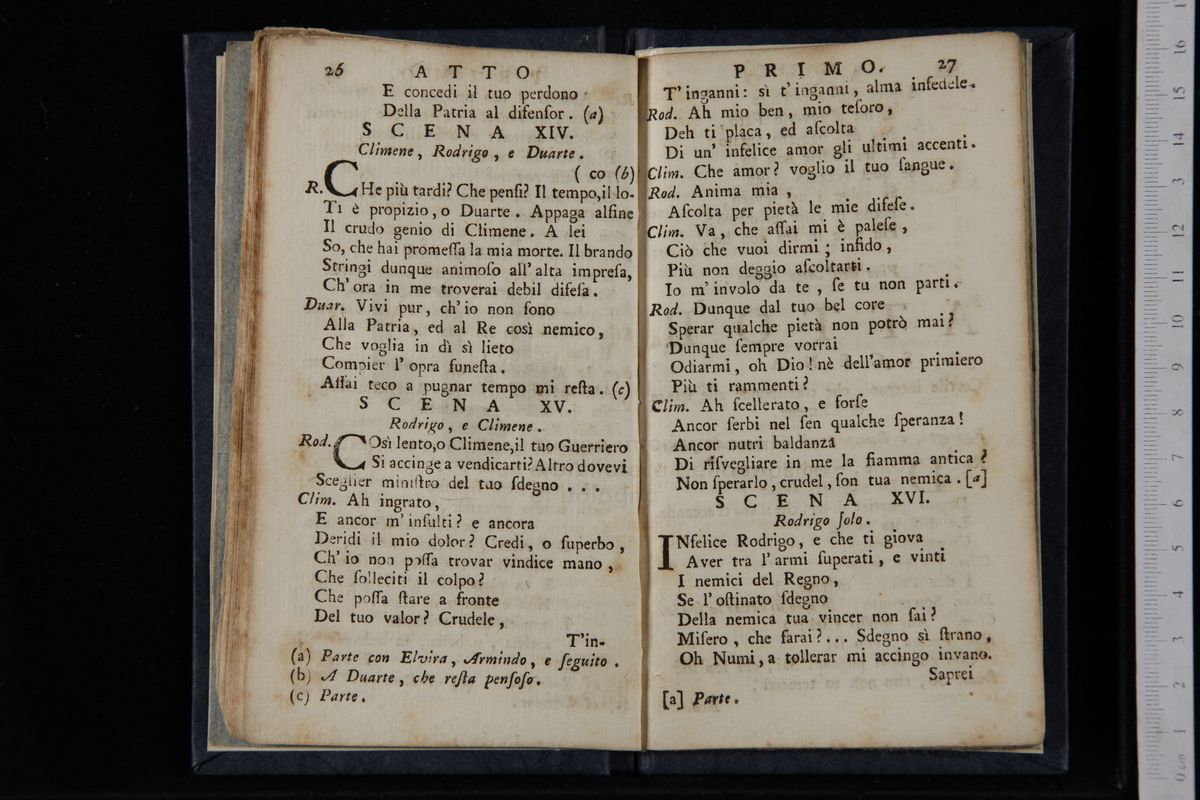 26 ATTO
E concedi il tuo perdono
Della Patria al difenſor. (a)
SCENA XIV.
Climene, Rodrigo, e Duarte.
( co (b)
R. CHe più tardi? Che penſi? Il tempo, il lo-
Ti è propizio, o Duarte. Appaga alfine
Il crudo genio di Climene. A lei
So, che hai promeſſa la mia morte. Il brando
Stringi dunque animoſo all' alta impreſa,
Ch' ora in me troverai debil difeſa.
Duar. Vivi pur, ch' io non ſono
Alla Patria, ed al Re così nemico,
Che voglia in dì sì lieto
Compier l' opra funeſta.
Aſſai teco a pugnar tempo mi reſta. (c)
SCENA XV.
Rodrigo, e Climene.
Rod. COsì lento, o Climene, il tuo Guerriero
Si accinge a vendicarti? Altro dovevi
Sceglier miniſtro del tuo ſdegno . . .
Clim. Ah ingrato,
E ancor m' inſulti? e ancora
Deridi il mio dolor? Credi, o ſuperbo,
Ch' io non poſſa trovar vindice mano,
Che ſolleciti il colpo?
Che poſſa ſtare a fronte
Del tuo valor? Crudele,
T'in-
(a) Parte con Elvira, Armindo, e ſeguito.
(b) A Duarte, che reſta penſoſo.
(c) Parte.
PRIMO. 27
T' inganni: sì t' inganni, alma infedele.
Rod. Ah mio ben, mio teſoro,
Deh ti placa, ed aſcolta
Di un' infelice amor gli ultimi accenti.
Clim. Che amor? voglio il tuo ſangue.
Rod. Anima mia,
Aſcolta per pietà le mie difeſe.
Clim. Va, che aſſai mi è paleſe,
Ciò che vuoi dirmi; infido,
Più non deggio aſcoltarti.
Io m' involo da te, ſe tu non parti.
Rod. Dunque dal tuo bel core
Sperar qualche pietà non potrò mai?
Dunque ſempre vorrai
Odiarmi, oh Dio! nè dell'amor primiero
Più ti rammenti?
Clim. Ah ſcellerato, e forſe
Ancor ſerbi nel ſen qualche ſperanza!
Ancor nutri baldanza
Di riſvegliare in me la fiamma antica?
Non ſperarlo, crudel, ſon tua nemica. [a]
SCENA XVI.
Rodrigo ſolo.
INfelice Rodrigo, e che ti giova
Aver tra l' armi ſuperati, e vinti
I nemici del Regno,
Se l' oſtinato ſdegno
Della nemica tua vincer non ſai?
Miſero, che farai?... Sdegno sì ſtrano,
Oh Numi, a tollerar mi accingo invano.
Saprei
[a] Parte.
0 cm 1 2 3 4 5 6 7 8 9 10 11 12 13 14 15 16